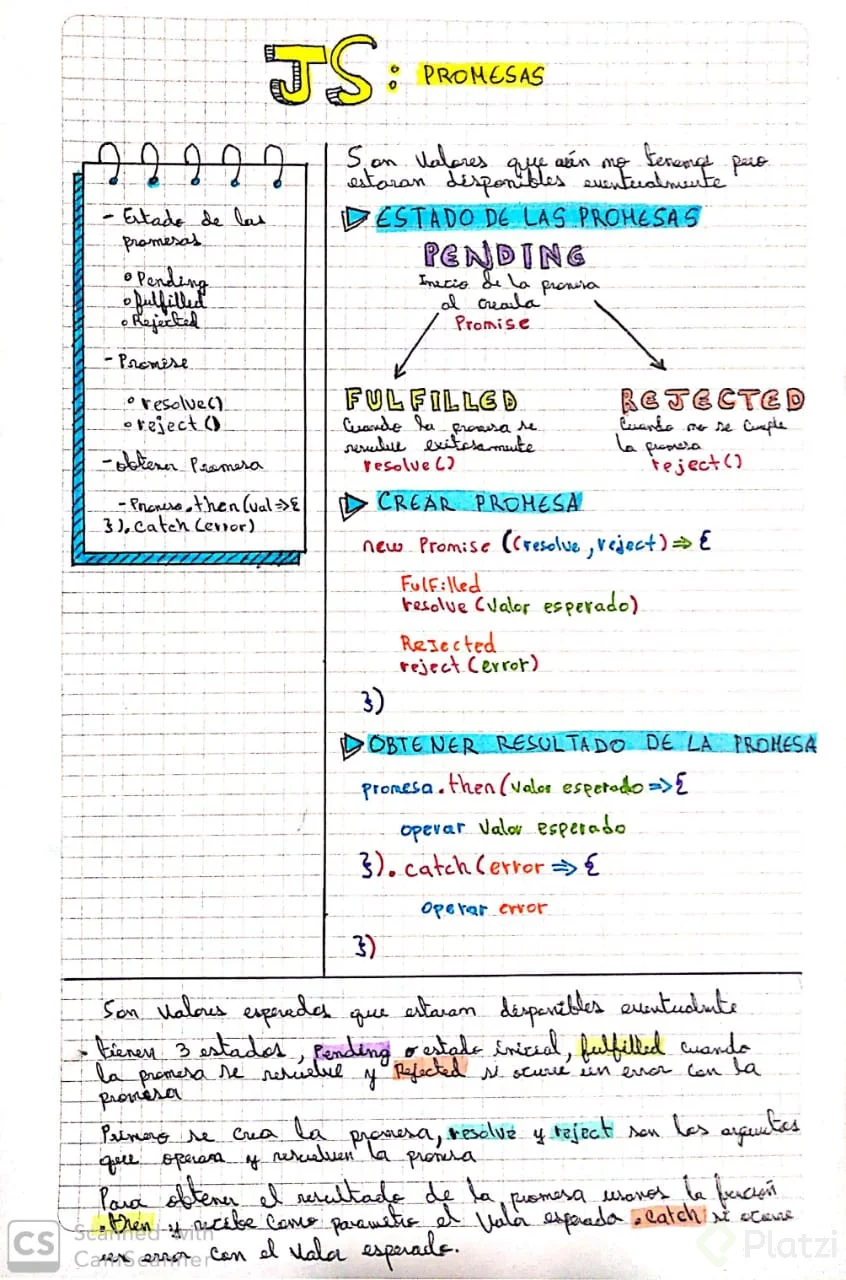 JS: PROMESAS
- Estado de las
promesas
Pending
fulfilled
Rejected
- Promise
resolve()
reject()
- obtener Promesa
- Promise.then(val => {
}).catch(error)
Son valores que aún no tenemos pero
estaran disponibles eventualmente
ESTADO DE LAS PROMESAS
PENDING
Inicio de la promesa
al crearla
Promise
FULFILLED
Cuando la promesa se
resuelve exitosamente
resolve()
REJECTED
Cuando no se cumple
la promesa
reject()
CREAR PROMESA
new Promise ((resolve, reject) => {
Fulfilled
resolve (valor esperado)
Rejected
reject (error)
})
OBTENER RESULTADO DE LA PROMESA
promesa.then(valor esperado => {
operar valor esperado
}).catch(error => {
operar error
})
Son valores esperados que estaran disponibles eventualmente
tienen 3 estados, Pending o estado inicial, fulfilled cuando
la promesa se resuelve y Rejected si ocurre un error con la
promesa
Primero se crea la promesa, resolve y reject son los argumentos
que operan y resuelven la promesa
Para obtener el resultado de la promesa usamos la función
.then y recibe como parametro el valor esperado .catch si ocurre
un error con el valor esperado.
CS Scanned with
CamScanner
Platzi